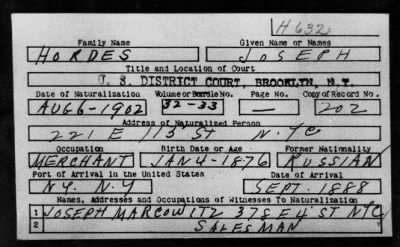 H 632
Family Name Given Name or Names
HORDES JOSEPH
Title and Location of Court
U. S. DISTRICT COURT, BROOKLYN, N.Y.
Date of Naturalization Volume or Bundle No. Page No. Copy of Record No.
AUG 6-1902 32-33 — 202
Address of Naturalized Person
221 E 113 ST N.YC
Occupation Birth Date or Age Former Nationality
MERCHANT JAN 4-1876 RUSSIAN
Port of Arrival in the United States Date of Arrival
N.Y. N.Y SEPT. 1888
Names, Addresses and Occupations of Witnesses To Naturalization
1 JOSEPH MARCOWITZ 378 E 4 ST NYC
2 SALESMAN